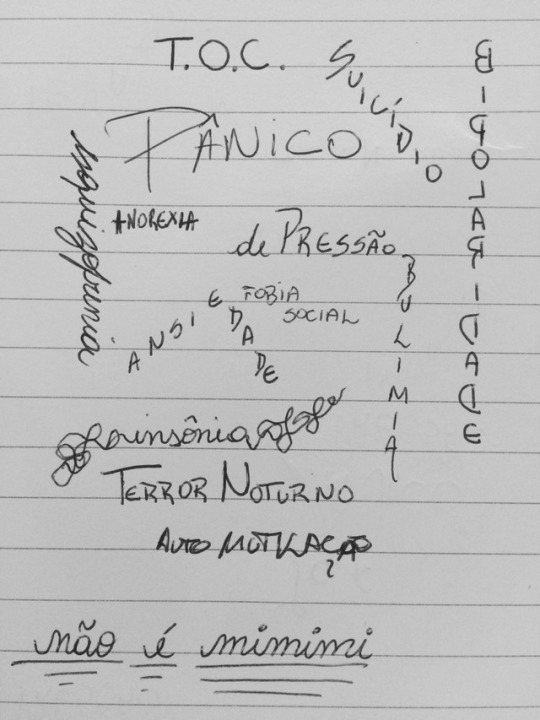 T.O.C.
SUICÍDIO
BIPOLARIDADE
PÂNICO
esquizofrenia
ANOREXIA
de PRESSÃO
BULIMIA
ANSIEDADE
FOBIA
SOCIAL
insônia
TERROR NOTURNO
AUTO MUTILAÇÃO
não é mimimi